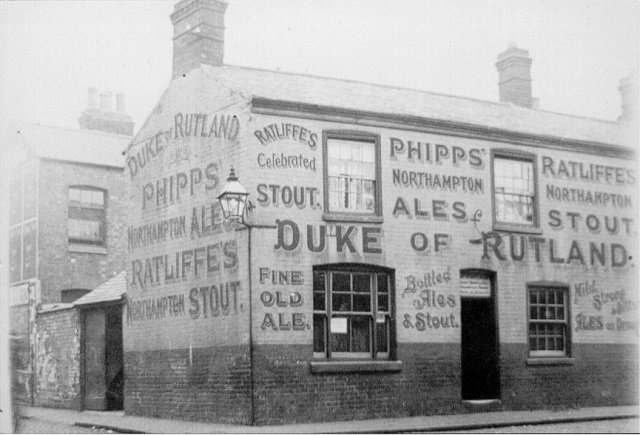 DUKE OF RUTLAND
PHIPPS'
NORTHAMPTON ALES
RATLIFFE'S
NORTHAMPTON STOUT.
RATLIFFE'S
Celebrated
STOUT.
PHIPPS'
NORTHAMPTON
ALES &
RATLIFFE'S
NORTHAMPTON
STOUT
DUKE OF RUTLAND.
FINE
OLD
ALE.
Bottled
Ales
& Stout.
Mild,
Strong
ALES